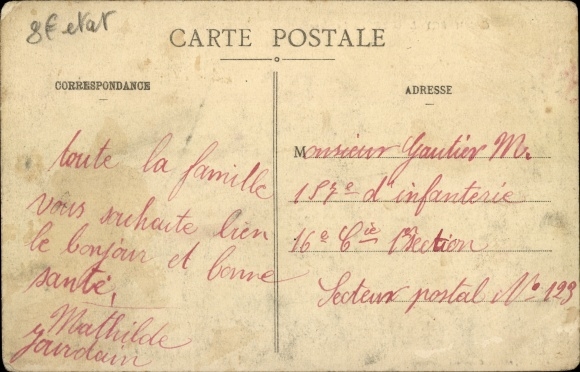 8€ etat
CARTE POSTALE
CORRESPONDANCE
toute la famille
vous souhaite bien
le bonjour et bonne
santé,
Mathilde
Jourdain
ADRESSE
Monsieur Gautier M.
d'infanterie
16e Cie Section
Secteur postal No 128